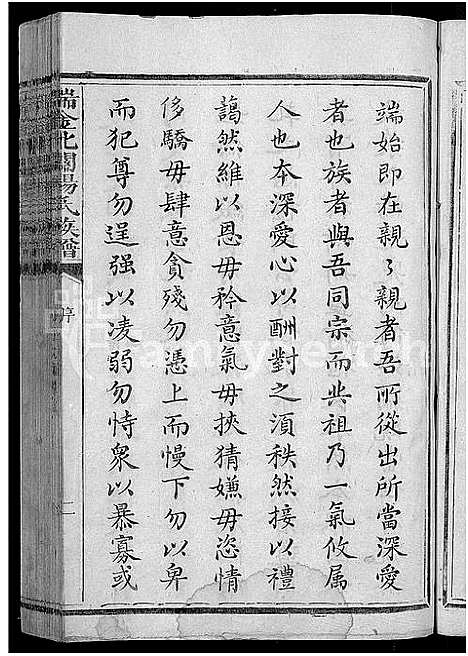 端始即在親々親者吾所從出所當深愛
者也族者與吾同宗而共祖乃一氣攸属
人也本深愛心以酬對之湏秩然接以禮
藹然維以恩毋矜意氣毋挾猜嫌毋恣情
侈驕毋肆意貪殘勿憑上而慢下勿以卑
而犯尊勿逞强以凌弱勿恃衆以暴寡或
瑞金北關楊氏族譜
序
二